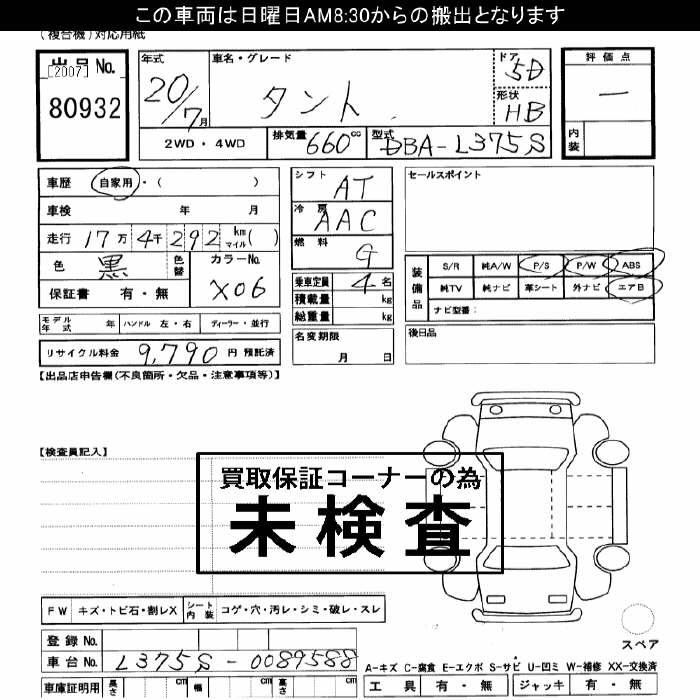 この車両は日曜日AM8:30からの搬出となります
(複合機)対応用紙
出品No.
[2007]
80932
年式
20/7月
車名・グレード
タント
ドア
5D
形状
HB
評価点
一
内装
2WD・4WD
排気量 660cc
型式 DBA-L375S
車歴 自家用・( )
車検 年 月
走行 17万4千292km マイル( )
色 黒 色替 カラーNo. X06
保証書 有・無
シフト AT
冷房 AAC
燃料 G
乗車定員 4名
積載量 kg
総重量 kg
セールスポイント
装備品
S/R 純A/W P/S P/W ABS
純TV 純ナビ 革シート 外ナビ エアB
ナビ型番:
モデル年式 年 ハンドル 左・右 ディーラー・並行
名変期限 月 日
後日品
リサイクル料金 9,790 円 預託済
【出品店申告欄(不良箇所・欠品・注意事項等)】
【検査員記入】
買取保証コーナーの為
未検査
FW キズ・トビ石・割レX シート内装 コゲ・穴・汚レ・シミ・破レ・スレ
スペア
登録No.
車台No. L375S-0089588
A-キズ C-腐食 E-エクボ S-サビ U-凹ミ W-補修 XX-交換済
車庫証明用 長さ cm 幅 cm 高さ cm
工具 有・無 ジャッキ 有・無